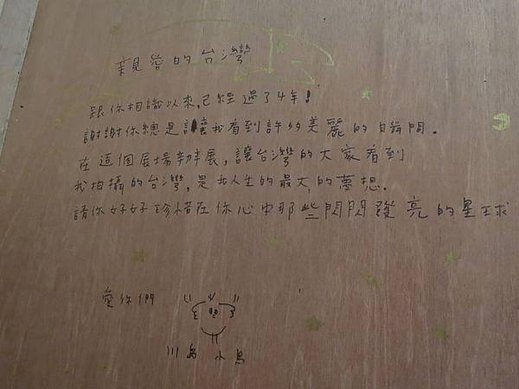 親愛的台灣
跟你相識以來,已經過了4年!
謝謝你總是讓我看到許多美麗的自瞬間。
在這個展場辦展,讓台灣的大家看到
我拍攝的台灣,是我人生的最大的夢想.
請你好好珍惜在你心中那些閃閃發亮的星球
愛你們
川島小鳥